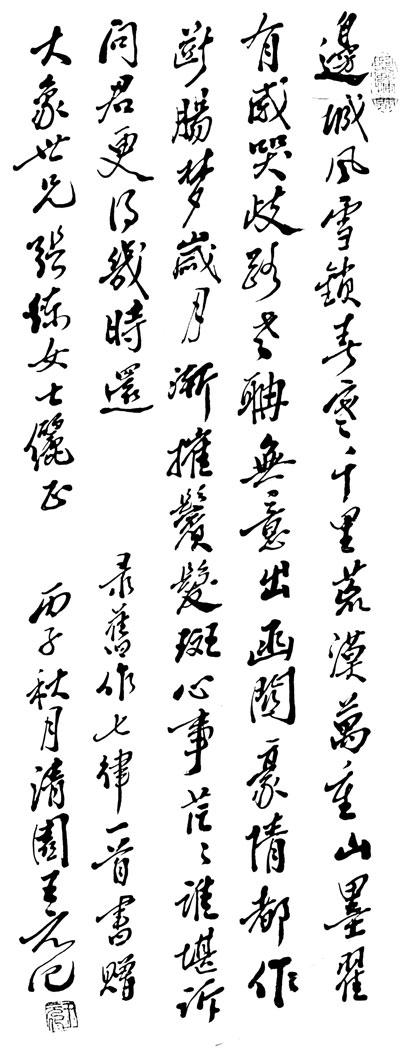 邊城風雪鎖春寒千里荒漠萬重山墨翟
有感哭歧路老聃無意出函關豪情都作
斷腸梦歲月漸摧鬢髮斑心事茫〻誰堪訴
問君更得幾時還
录舊作七律一首書贈
大象世兄張煉女士儷正
丙子秋月清園王元化